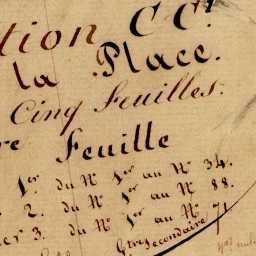 tion CC.t
la Place.
Cinq Feuilles.
re Feuille
1er. du No 1er au No 34.
2. du No 1er au No 88.
3. du No 1er au No 71
Secondaire